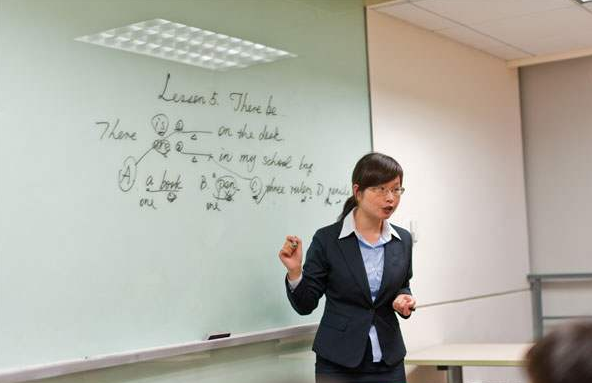 Lesson 5. There be
There is ① on the desk
are ② in my school bag
A a book B. a pen C three rulers D pencils
one one